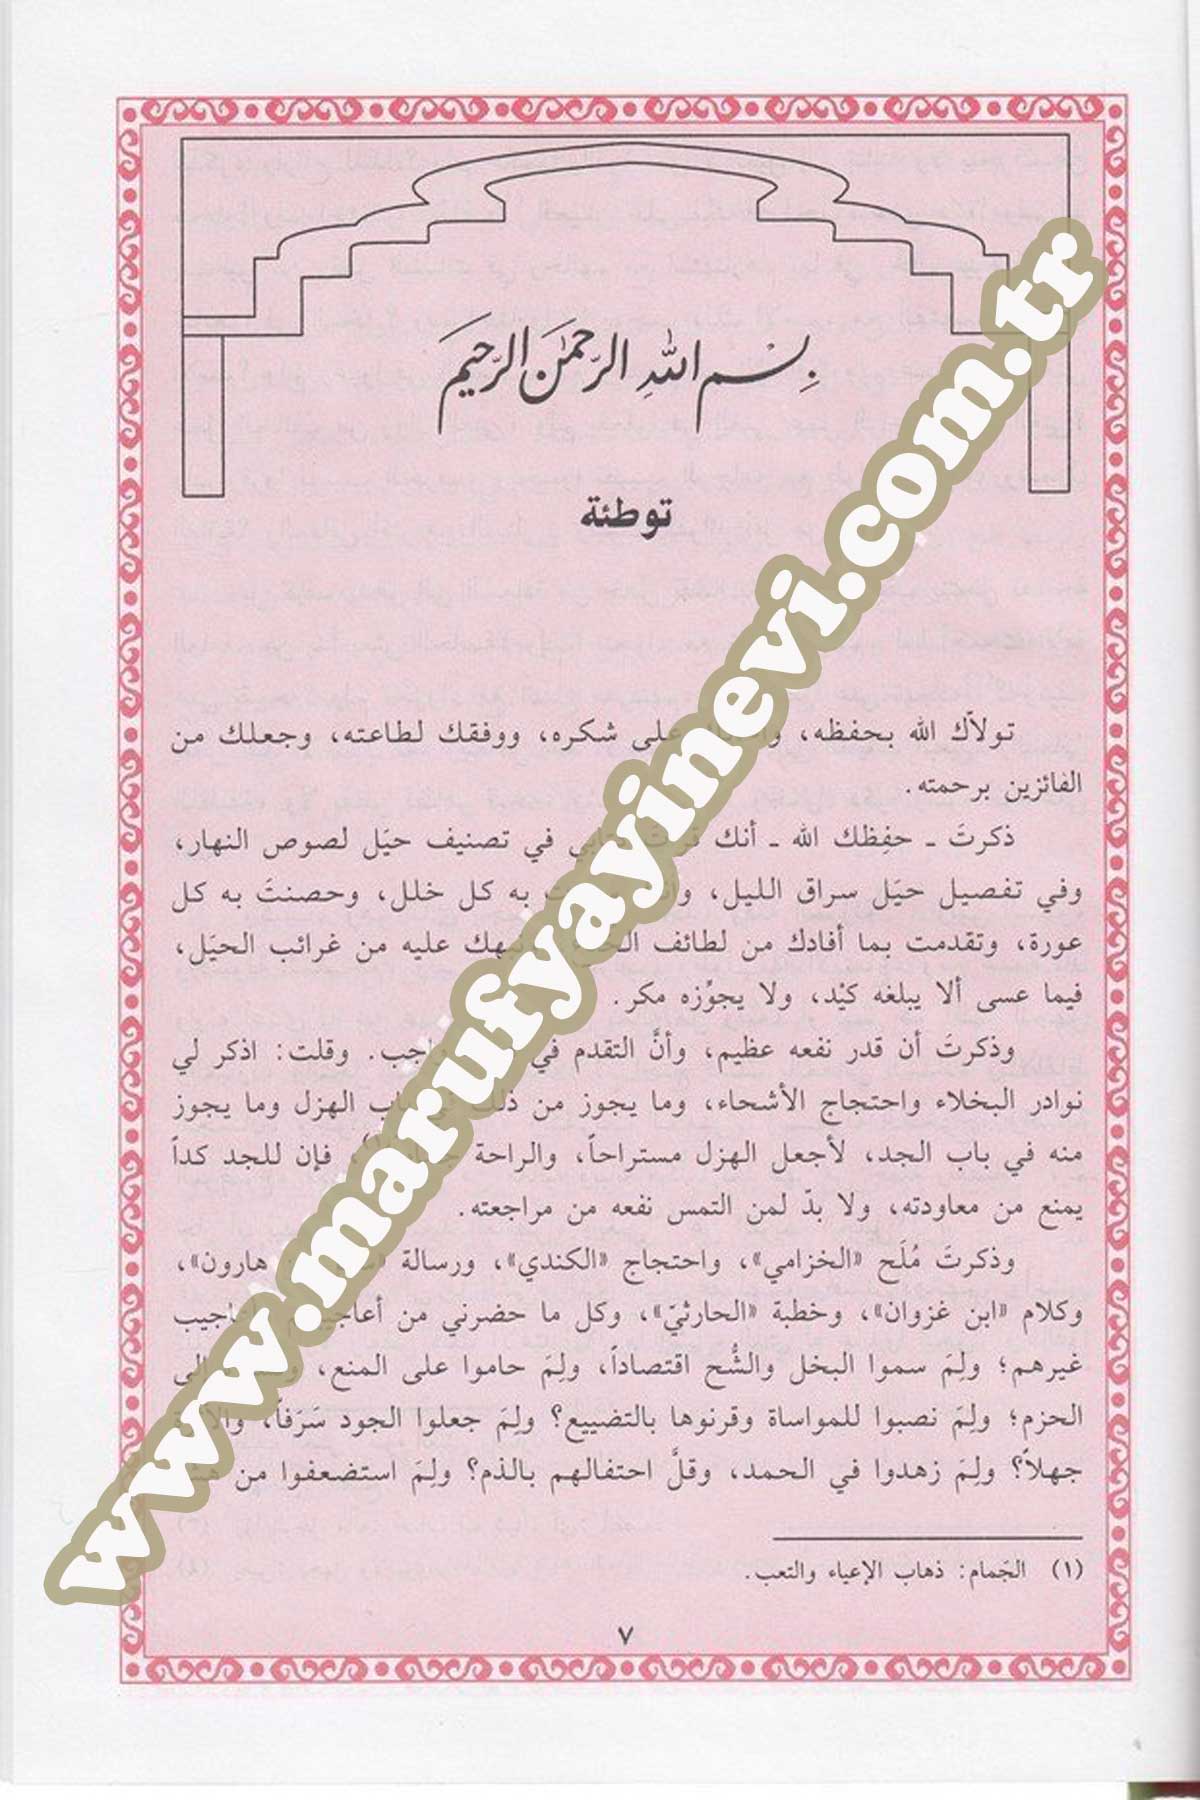 بِسْمِ اللهِ الرَّحْمٰنِ الرَّحِيمِ
توطئة
تولاّك الله بحفظه، على شكره، ووفقك لطاعته، وجعلك من
الفائزين برحمته.
ذكرتَ ـ حفِظك الله ـ أنك في تصنيف حيَل لصوص النهار،
وفي تفصيل حيَل سراق الليل، به كل خلل، وحصنتَ به كل
عورة، وتقدمت بما أفادك من لطائف عليه من غرائب الحيَل،
فيما عسى ألا يبلغه كيْد، ولا يجوِّزه مكر.
وذكرتَ أن قدر نفعه عظيم، وأنَّ التقدم في وقلت: اذكر لي
نوادر البخلاء واحتجاج الأشحاء، وما يجوز من ذلك الهزل وما يجوز
منه في باب الجد، لأجعل الهزل مستراحاً، والراحة فإن للجد كداً
يمنع من معاودته، ولا بدّ لمن التمس نفعه من مراجعته.
وذكرتَ مُلَح «الخزامي»، واحتجاج «الكندي»، ورسالة هارون»،
وكلام «ابن غزوان»، وخطبة «الحارثيّ»، وكل ما حضرني من
غيرهم؛ ولِمَ سموا البخل والشُّح اقتصاداً، ولِمَ حاموا على المنع،
الحزم؛ ولِمَ نصبوا للمواساة وقرنوها بالتضييع؟ ولِمَ جعلوا الجود سَرَفاً،
جهلاً؟ ولِمَ زهدوا في الحمد، وقلَّ احتفالهم بالذم؟ ولِمَ استضعفوا من
(١) الجَمام: ذهاب الإعياء والتعب.
٧
www.marufyayinevi.com.tr